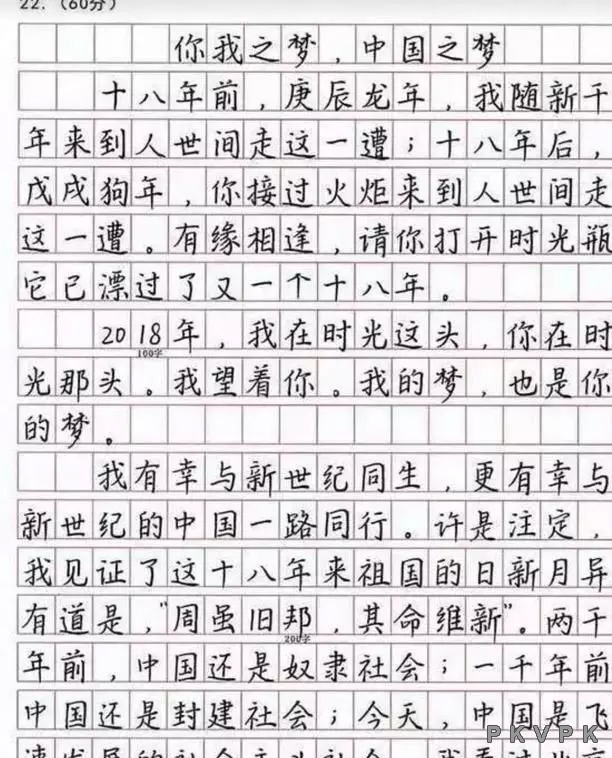 22.（60分）
你我之梦，中国之梦
十八年前，庚辰龙年，我随新千
年来到人世间走这一遭；十八年后，
戊戌狗年，你接过火炬来到人世间走
这一遭。有缘相逢，请你打开时光瓶
它已漂过了又一个十八年。
2018年，我在时光这头，你在时
100字
光那头。我望着你。我的梦，也是你
的梦。
我有幸与新世纪同生，更有幸与
新世纪的中国一路同行。许是注定，
我见证了这十八年来祖国的日新月异
有道是，"周虽旧邦，其命维新"。两千
200字
年前，中国还是奴隶社会；一千年前
中国还是封建社会；今天，中国是飞
速发展的社会主义社会。我看过北京
PKVPK